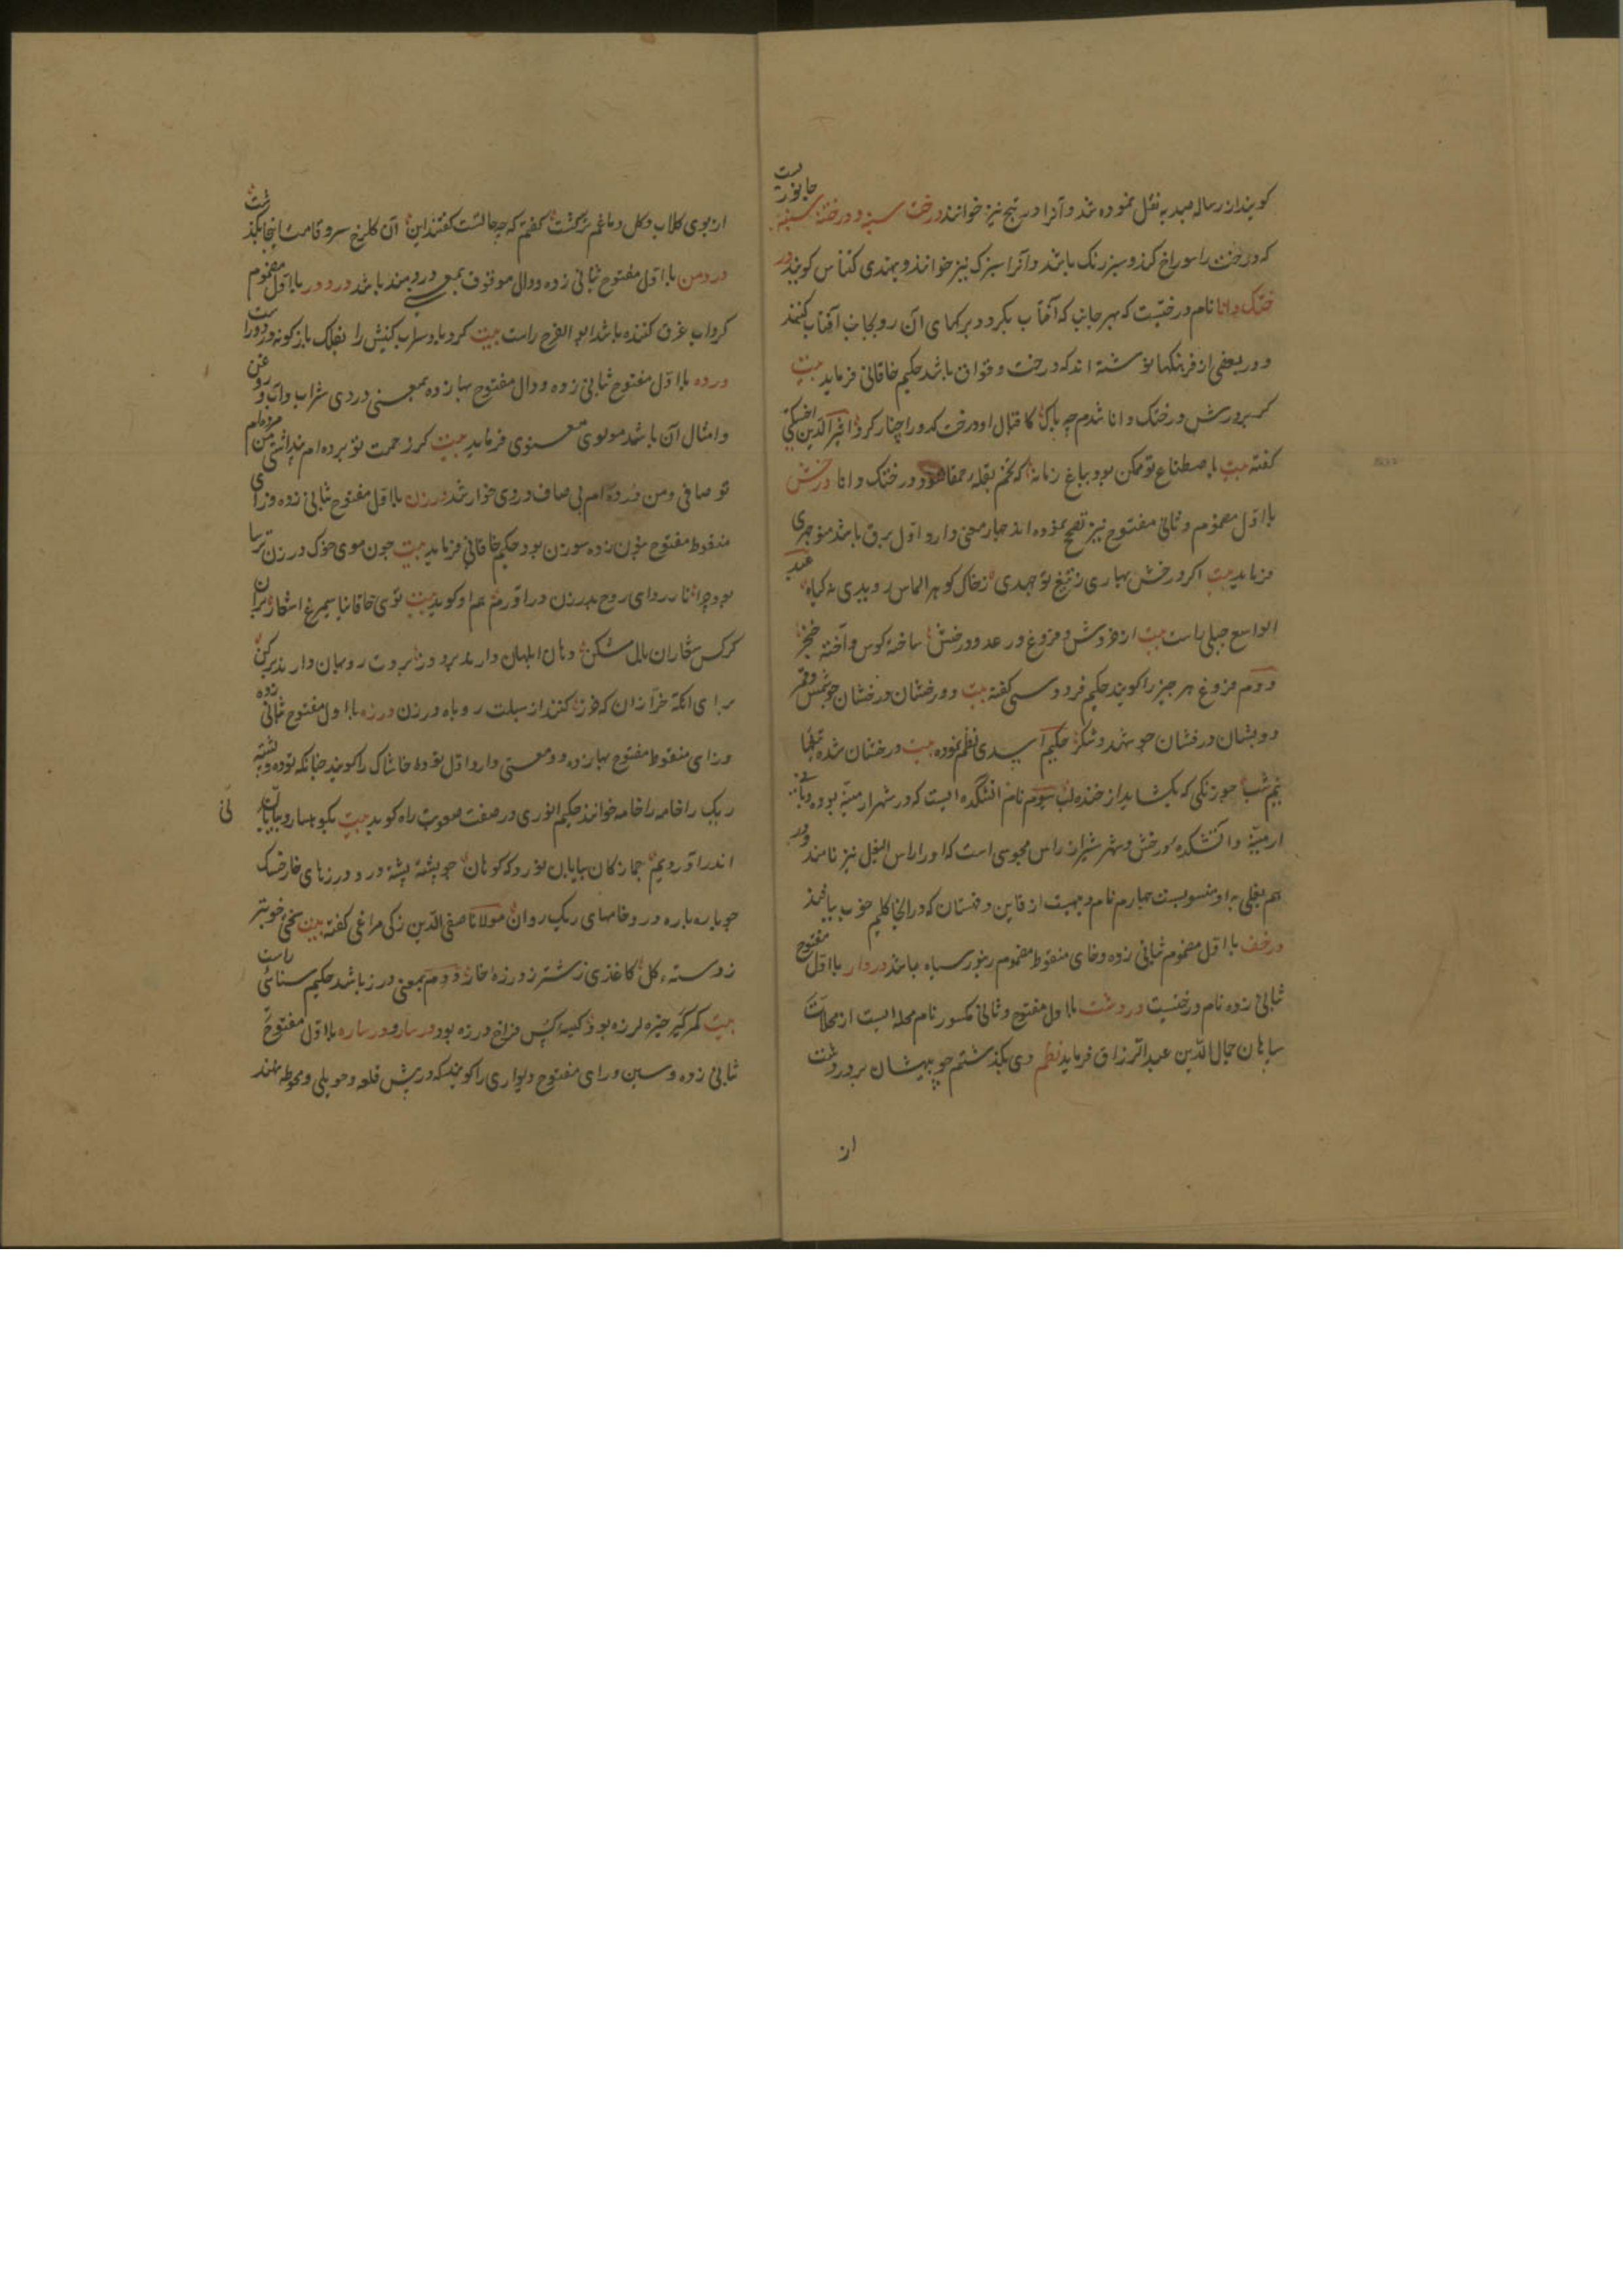 گویند از رساله مبدیه نقل نموده شد و آنرا درتج نیز خوانند درخت سنبه و درختنه سنبه جانوریست
که درخت را سوراخ کند و سبز رنک باشد و آنرا سبزک نیز خوانند و بهندی کتناس گویند در
ختک دانا نام درختیست که بهر جانب که آفتاب بگردد برکهای آن رو بجانب آفتاب کنند
و در بعضی از فرهنگها نوشته اند که درخت وقواق باشد حکیم خاقانی فرماید بیت
کز پرورش درختک دانا شدم چه باک کاقبال او درخت کدو را چنار کرد اثیر الدین اخسیکتی
گفته بیت باصطناع تو ممکن بود بباغ زمانه که تخم بقله حمقا شود درختک دانا درخش
با اول مضموم و ثانی مفتوح نیز تصحیح نموده اند چهار معنی دارد اول برق باشد منوچهری
فرماید بیت اگر درخش بهاری ز تیغ تو جهدی زخاک گوهر الماس رویدی نه گیاه عبد
الواسع جبلی راست بیت از خروش و فروغ رعد و درخش ساخته کوس و آخته خنجر
دوم فروغ هر چیز را گویند حکیم فردوسی گفته بیت دو رخشان درخشان چو شمس و قمر
دو بشان درفشان چو شهد و شکر حکیم اسدی نظم نموده بیت درخشان شده
نیم شب چو زنگی که بگشاید از خنده لب سوم نام آتشکده ایست که در شهر ارمنیه بوده و بانی
ارمنیه و آتشکده درخش و شهر شیراز راس مجوسی است که او را راس البغل نیز نامند و در
هم بغلی باو منسوبست چهارم نام دیهیست از قاین و قهستان که در آنجا گلیم خوب بافند
درخف با اول مضموم ثانی زده و خای منقوط مضموم زنبور سیاه باشد دردار با اول مفتوح
ثانی زده نام درختیست دردشت با اول مفتوح و ثانی مکسور نام محله ایست از محلات
سپاهان جمال الدین عبد الرزاق فرماید نظم دی بگذشتم چو بیهشان بر در دشت
از
از بوی کلاب و کل دماغم پر کشت کفتم که چه حالتست کفتند این آن کلرخ سرو قامت اینجا بکذشت
دردمن با اول مفتوح ثانی زده و دال موقوف بمعنی دردمند باشد دردور با اول مضموم
کرداب غرق کننده باشد ابو الفرج راست بیت گرد باد سراب کنیش را بفلک بازگونه دردورا ست
درده با اول مفتوح ثانی زده و دال مفتوح بها زده بمعنی دردی شراب و آب و روغن
و امثال آن باشد مولوی معنوی فرماید بیت کر زحمت تو برده ام پنداشتی من مرده ام
تو صافی و من درده ام بی صاف دردی خوار شد درزن با اول مفتوح ثانی زده و زای
منقوط مفتوح بنون زده سوزن بود حکیم خاقانی فرماید بیت چون موی خوک در زن ترسا
بود چرا تار ردای روح بدرزن در آورم هم او گوید بیت توئی خاقانیا سیمرغ اشعار بران
کرکس شعاران بال بشکن دهان ابلهان دارند بر دوز بروت روبهان دارند برکن
برای آنکه خرازان که خرز کنند از سبلت روباه درزن درزه با اول مفتوح ثانی زده
و زای منقوط مفتوح بها زده دو معنی دارد اول توده خاشاک را گویند چنانکه توده و پشته
ریک را خامه را خامه خوانند حکیم انوری در صفت صعوبت راه گوید بیت بکوهسار و بیابانی
لی
اندر آوردیم جمازکان بیابان نورد که کوهان چو پشته پشته درو درزهای خار خسک
چو باره باره درو خامهای ریک روان مولانا صفی الدین زکی مراغی گفته بیت نخی خوبتر
ز دسته کل کاغذی زشتر ز درزه خار دوم بمعنی درز باشد حکیم سنائی راست
بیت کمر کیر خیره لرزه بود کیسه کیس فراخ درزه بود درسار و درساره با اول مفتوح
ثانی زده و سین و رای مفتوح دیواری را گویند که در پیش قلعه و حویلی و محوطه نهند